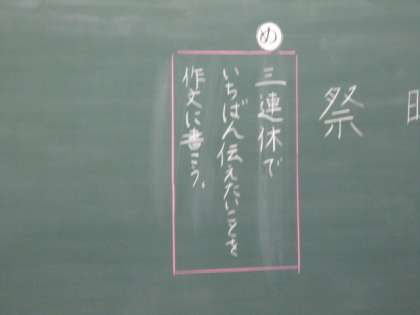 祭
め
三連休で
いちばん伝えたいことを
作文に書こう。